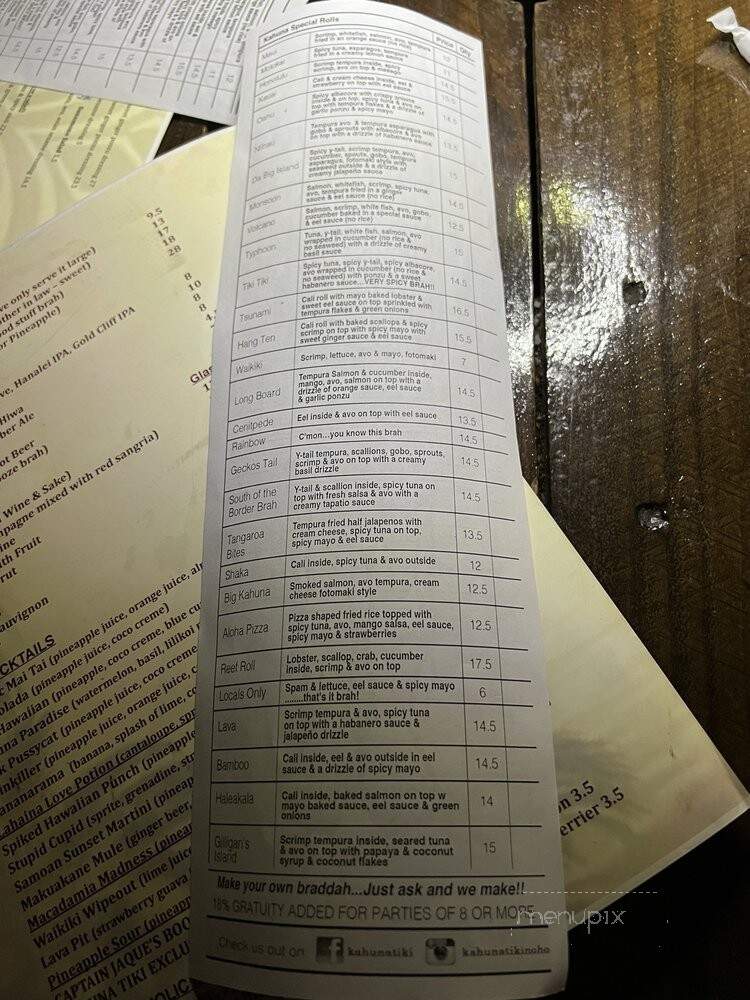 Kahuna Special Rolls
Price
Qty.
Maui
Scrimp, whitefish, salmon, avo, tempura
fried in an orange sauce (no rice)
Molokai
Spicy tuna, asparagus, tempura
fried in a creamy lemon sauce
Honolulu
Scrimp tempura inside, spicy
scrimp, avo on top & masago
Cali & cream cheese inside, eel &
strawberry on top with eel sauce
Oahu
Spicy albacore with crispy onions
inside & on top, spicy tuna & avo on
top with tempura flakes & a drizzle of
garlic ponzu & spicy mayo
14.5
Niihau
Tempura avo & tempura asparagus with
gobo & sprouts with albacore & avo
on top with a drizzle of habanero sauce
13.5
Da Big Island
Spicy y-tail, scrimp tempura, avo,
cucumber, spouts, gobo, tempura
asparagus, fotomaki style with
seaweed outside & a drizzle of
creamy jalapeño sauce
15
Monsoon
Salmon, whitefish, scrimp, spicy tuna,
avo, tempura fried in a ginger
& eel sauce (no rice)
14.5
Volcano
Salmon, scrimp, white fish, avo, gobo,
cucumber baked in a special sauce
& eel sauce (no rice)
12.5
Typhoon
Tuna, y-tail, white fish, salmon, avo
wrapped in cucumber (no rice &
no seaweed) with a drizzle of creamy
basil sauce
15
Tiki Tiki
Spicy tuna, spicy y-tail, spicy albacore,
avo wrapped in cucumber (no rice &
no seaweed) with ponzu & a sweet
habanero sauce...VERY SPICY BRAH!!
14.5
Tsunami
Cali roll with mayo baked lobster &
sweet eel sauce on top sprinkled with
tempura flakes & green onions
16.5
Hang Ten
Cali roll with baked scallops & spicy
scrimp on top with spicy mayo with
sweet ginger sauce & eel sauce
15.5
Waikiki
Scrimp, lettuce, avo & mayo, fotomaki
7
Long Board
Tempura Salmon & cucumber inside,
mango, avo, salmon on top with a
drizzle of orange sauce, eel sauce
& garlic ponzu
14.5
Cenitpede
Eel inside & avo on top with eel sauce
13.5
Rainbow
C'mon...you know this brah
14.5
Geckos Tail
Y-tail tempura, scallions, gobo, sprouts,
scrimp & avo on top with a creamy
basil drizzle
14.5
South of the
Border Brah
Y-tail & scallion inside, spicy tuna on
top with fresh salsa & avo with a
creamy tapatio sauce
14.5
Tangaroa
Bites
Tempura fried half jalapenos with
cream cheese, spicy tuna on top,
spicy mayo & eel sauce
13.5
Shaka
Cali inside, spicy tuna & avo outside
12
Big Kahuna
Smoked salmon, avo tempura, cream
cheese fotomaki style
12.5
Aloha Pizza
Pizza shaped fried rice topped with
spicy tuna, avo, mango salsa, eel sauce,
spicy mayo & strawberries
12.5
Reef Roll
Lobster, scallop, crab, cucumber
inside, scrimp & avo on top
17.5
Locals Only
Spam & lettuce, eel sauce & spicy mayo
........that's it brah!
6
Lava
Scrimp tempura & avo, spicy tuna
on top with a habanero sauce &
jalapeño drizzle
14.5
Bamboo
Cali inside, eel & avo outside in eel
sauce & a drizzle of spicy mayo
14.5
Haleakala
Cali inside, baked salmon on top w
mayo baked sauce, eel sauce & green
onions
14
Gilligan's
Island
Scrimp tempura inside, seared tuna
& avo on top with papaya & coconut
syrup & coconut flakes
15
Make your own braddah...Just ask and we make!!
18% GRATUITY ADDED FOR PARTIES OF 8 OR MORE
Check us out on
kahunatiki
kahunatikinoho
menupix
9.5
13
17
18
28
ve only serve it large)
ther in law - sweet)
ood stuff brah)
or Pineapple)
8
10
8
ve, Hanalei IPA, Gold Cliff IPA
Hiwa
ber Ale
Glas
ot Beer
ooze brah)
Wine & Sake)
mpagne mixed with red sangria)
ine
ith Fruit
rut
auvignon
CKTAILS
c Mai Tai (pineapple juice, orange juice, al
olada (pineapple juice, coco creme)
Hawaiian (pineapple, coco creme, blue cu
una Paradise (watermelon, basil, lilikoi
k Pussycat (pineapple juice, coco creme
inkiller (pineapple juice, orange juice, c
ananarama (banana, splash of lime, co
Lahaina Love Potion (cantaloupe, spr
Spiked Hawaiian Punch (pineapple
Stupid Cupid (sprite, grenadine, str
Samoan Sunset Martini (pineapple
Makuakane Mule (ginger beer,
Macadamia Madness (pineap
Waikiki Wipeout (lime juice
Lava Pit (strawberry guava
Pineapple Sour (pineapp
CAPTAIN JAQUE'S BOO
UNA TIKI EXCLU
n 3.5
errier 3.5